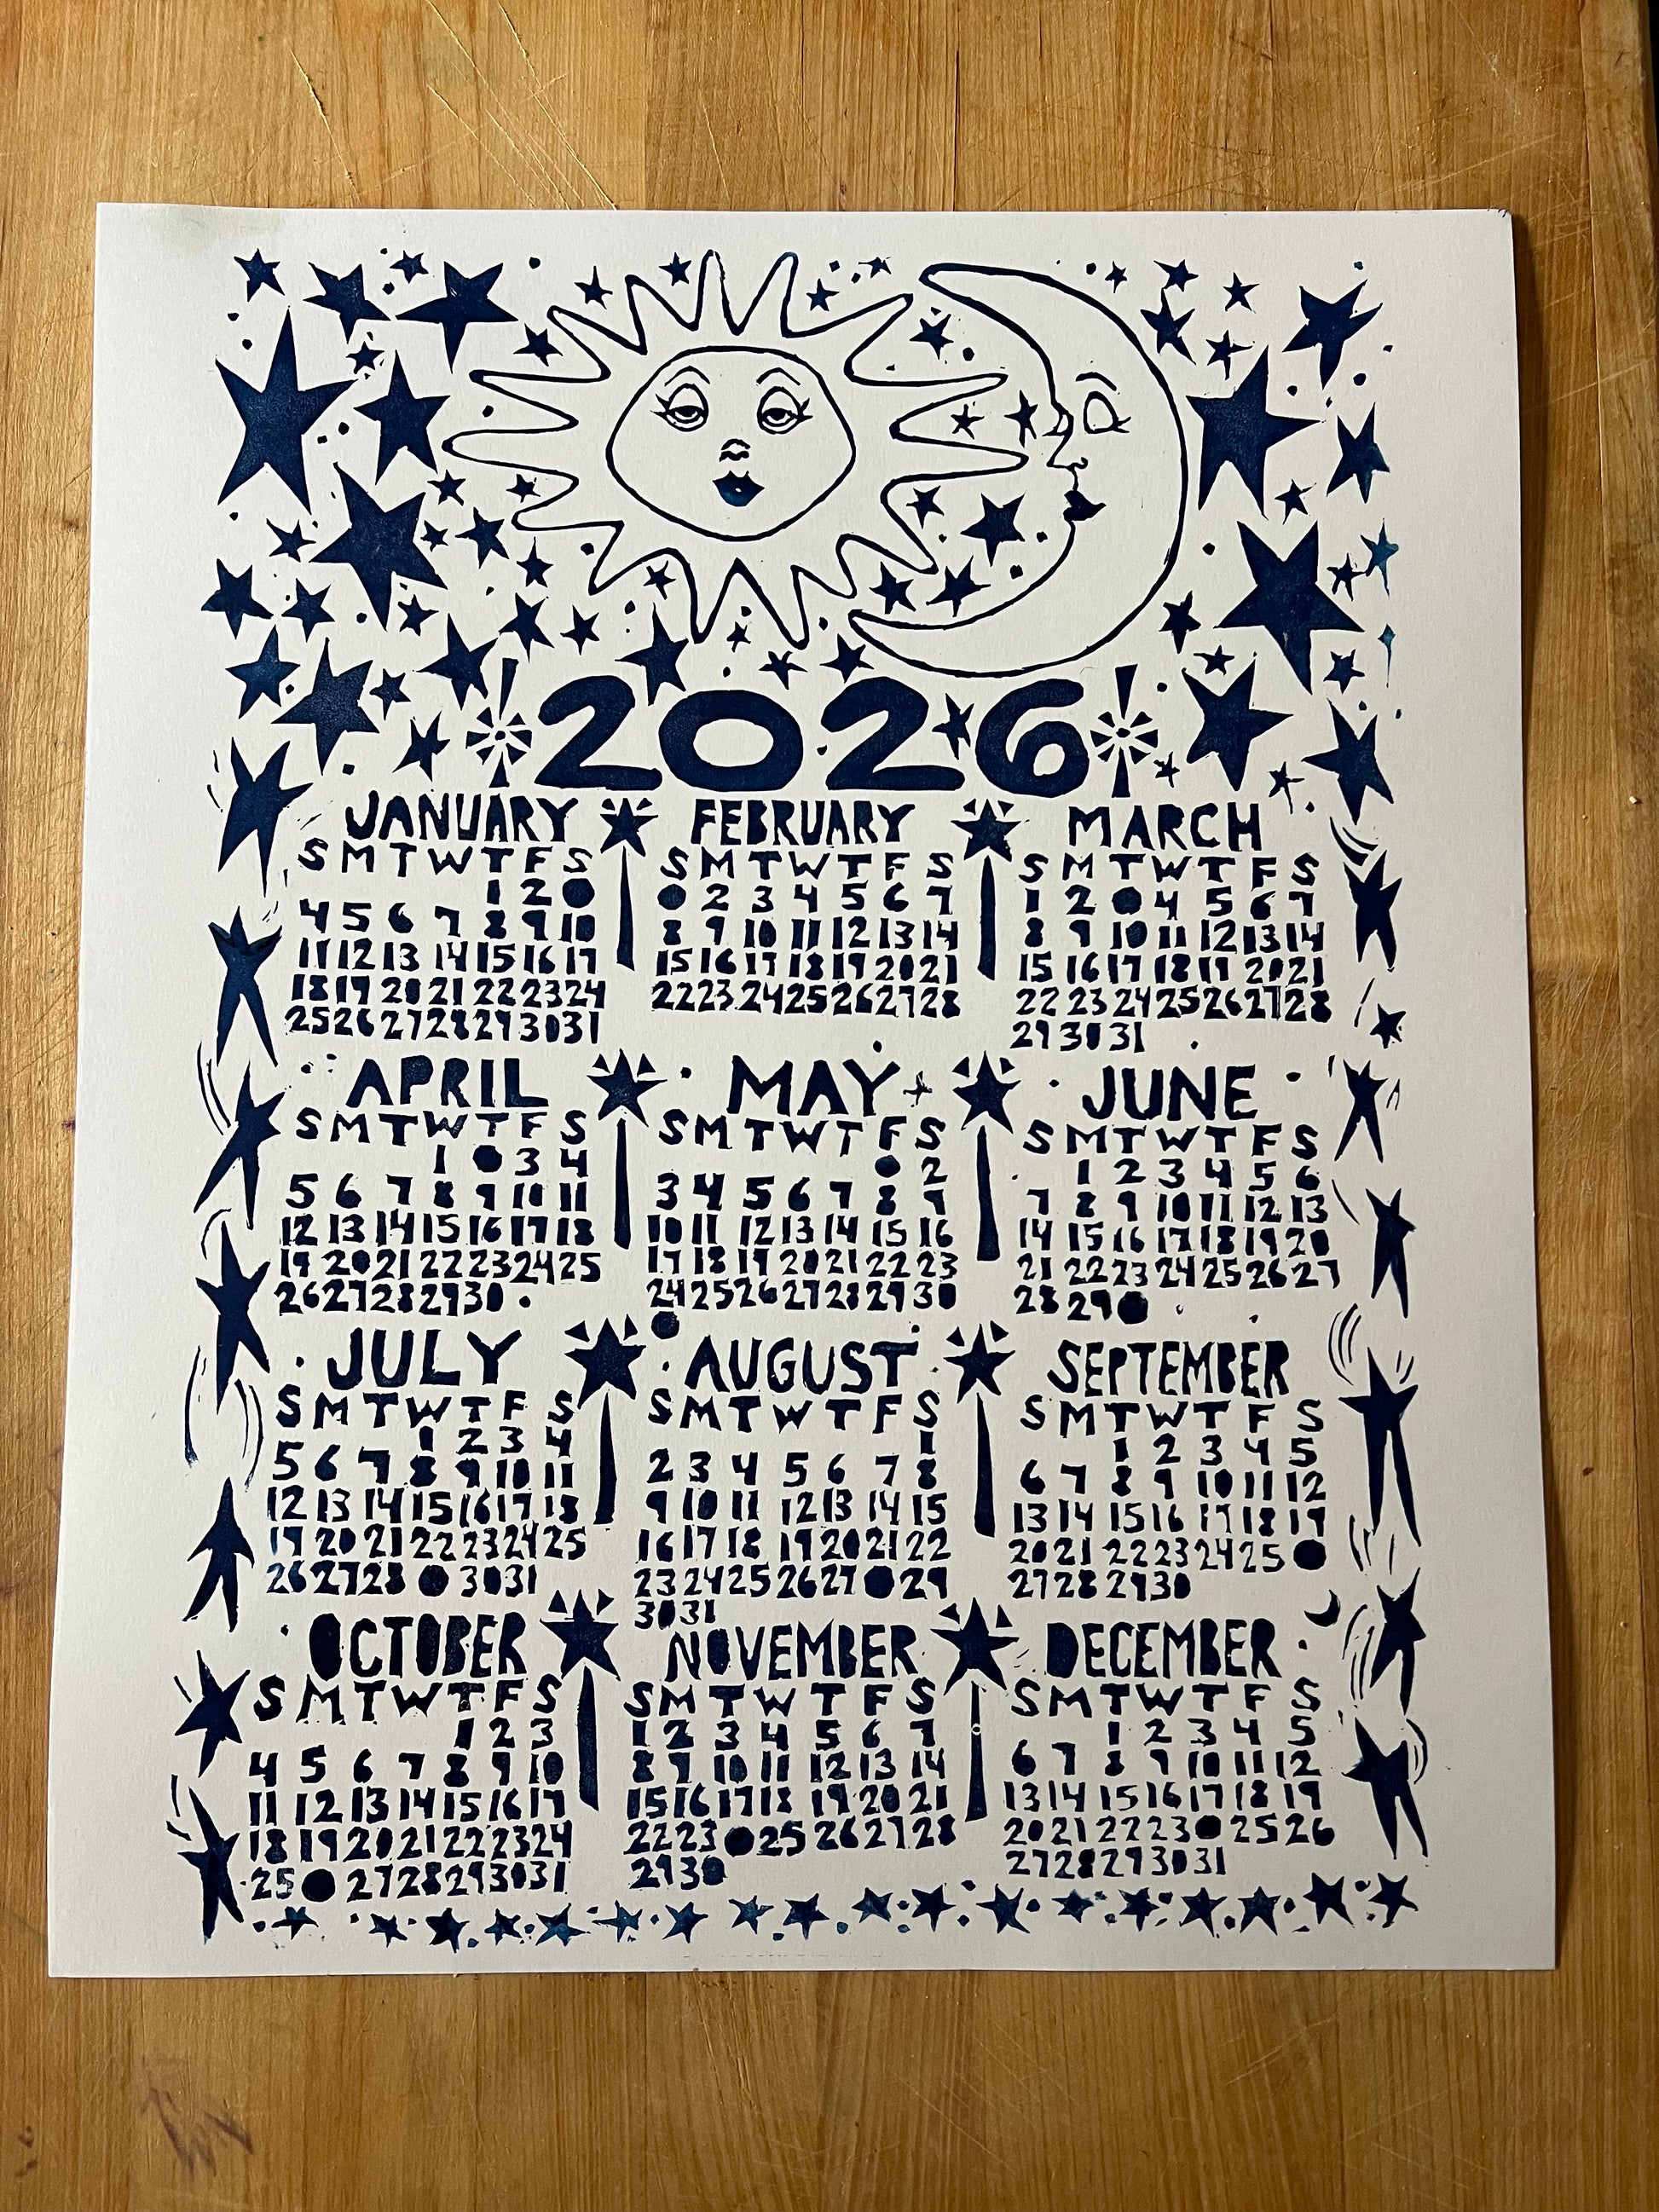 2026
JANUARY
S M T W T F S
1 2 ●
4 5 6 7 8 9 10
11 12 13 14 15 16 17
18 19 20 21 22 23 24
25 26 27 28 29 30 31
FEBRUARY
S M T W T F S
● 2 3 4 5 6 7
8 9 10 11 12 13 14
15 16 17 18 19 20 21
22 23 24 25 26 27 28
MARCH
S M T W T F S
1 2 ● 4 5 6 7
8 9 10 11 12 13 14
15 16 17 18 19 20 21
22 23 24 25 26 27 28
29 30 31
APRIL
S M T W T F S
1 ● 3 4
5 6 7 8 9 10 11
12 13 14 15 16 17 18
19 20 21 22 23 24 25
26 27 28 29 30
MAY
S M T W T F S
● 2
3 4 5 6 7 8 9
10 11 12 13 14 15 16
17 18 19 20 21 22 23
24 25 26 27 28 29 30
●
JUNE
S M T W T F S
1 2 3 4 5 6
7 8 9 10 11 12 13
14 15 16 17 18 19 20
21 22 23 24 25 26 27
28 29 ●
JULY
S M T W T F S
1 2 3 4
5 6 7 8 9 10 11
12 13 14 15 16 17 18
19 20 21 22 23 24 25
26 27 28 ● 30 31
AUGUST
S M T W T F S
1
2 3 4 5 6 7 8
9 10 11 12 13 14 15
16 17 18 19 20 21 22
23 24 25 26 27 ● 29
30 31
SEPTEMBER
S M T W T F S
1 2 3 4 5
6 7 8 9 10 11 12
13 14 15 16 17 18 19
20 21 22 23 24 25 ●
27 28 29 30
OCTOBER
S M T W T F S
1 2 3
4 5 6 7 8 9 10
11 12 13 14 15 16 17
18 19 20 21 22 23 24
25 ● 27 28 29 30 31
NOVEMBER
S M T W T F S
1 2 3 4 5 6 7
8 9 10 11 12 13 14
15 16 17 18 19 20 21
22 23 ● 25 26 27 28
29 30
DECEMBER
S M T W T F S
1 2 3 4 5
6 7 8 9 10 11 12
13 14 15 16 17 18 19
20 21 22 23 ● 25 26
27 28 29 30 31